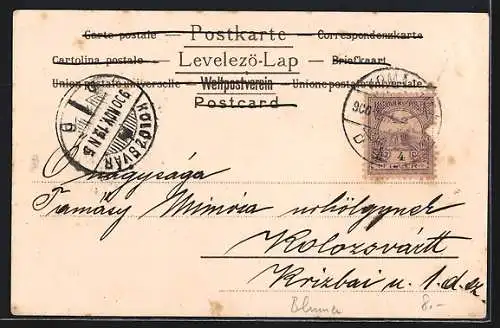 Carte postale — Postkarte — Correspondenzkarte
Cartolina postale — Levelező-Lap — Briefkaart
Union postale universelle Weltpostverein Unione postale universale
Postcard
KOLOZSVÁR
900 NOV. 18 N 5
900
4
Ő nagysága
Tamásy Mimósa urhölgynek
Kolozsvártt
Krizbai u. 1. d. sz.
Blumen 8.-